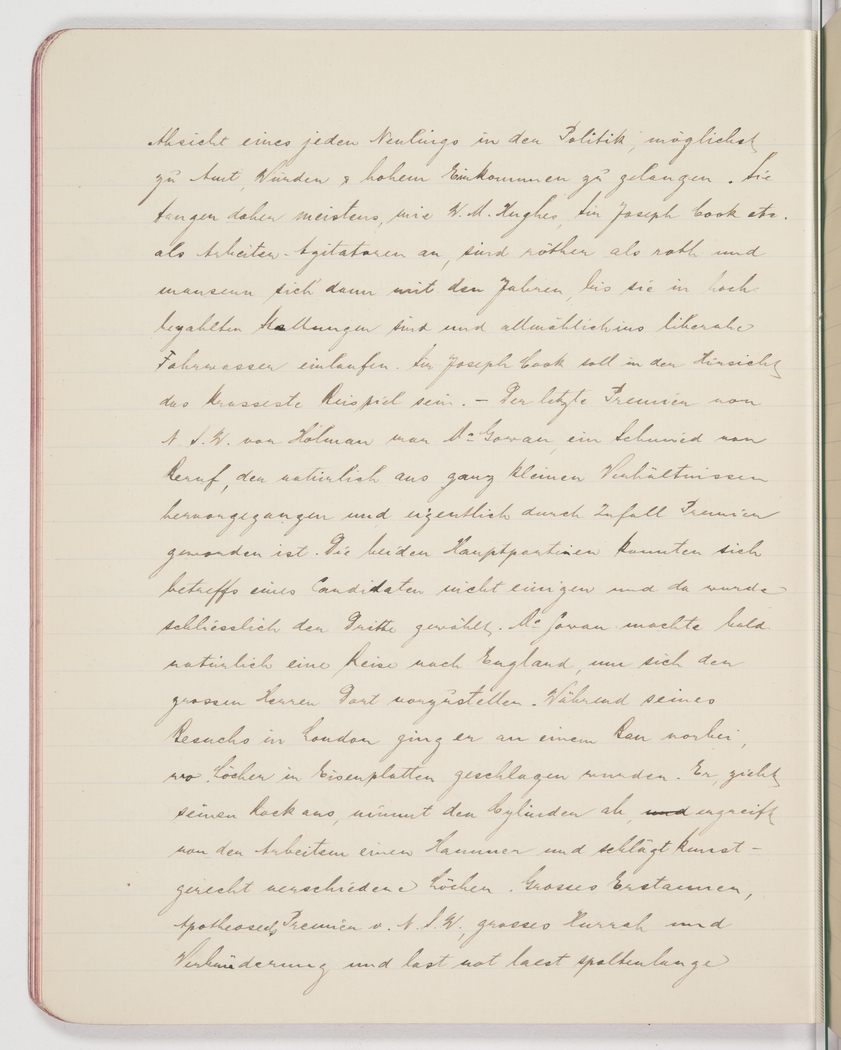 Absicht eines jeden Neulings in der Politik, möglichst
zu Amt, Würden & hohem Einkommen zu gelangen. Sie
fangen daher meistens, wie W. M. Hughes, Sir Joseph Cook etc.
als Arbeiter-Agitatoren an, sind röther als roth und
mausern sich dann mit den Jahren, bis sie in hoch-
bezahlten Stellungen sind und allmählich ins liberale
Fahrwasser einlaufen. Sir Joseph Cook soll in der Hinsicht
das krasseste Beispiel sein. – Der letzte Premier von
N. S. W. vor Holman war Mc Gowan, ein Schmied von
Beruf, der natürlich aus ganz kleinen Verhältnissen
hervorgegangen und eigentlich durch Zufall Premier
geworden ist. Die beiden Hauptparteien konnten sich
betreffs eines Candidaten nicht einigen und da wurde
schliesslich der Dritte gewählt. Mc Gowan machte bald
natürlich eine Reise nach England, um sich den
grossen Herren dort vorzustellen. Während seines
Besuchs in London ging er an einem Bau vorbei,
wo Löcher in Eisenplatten geschlagen wurden. Er zieht
seinen Rock aus, nimmt den Cylinder ab, und ergreift
von den Arbeitern einen Hammer und schlägt kunst-
gerecht verschiedene Löcher. Grosses Erstaunen,
Premier v. N. S. W., grosses Hurrah und
und last not laest spaltenlange